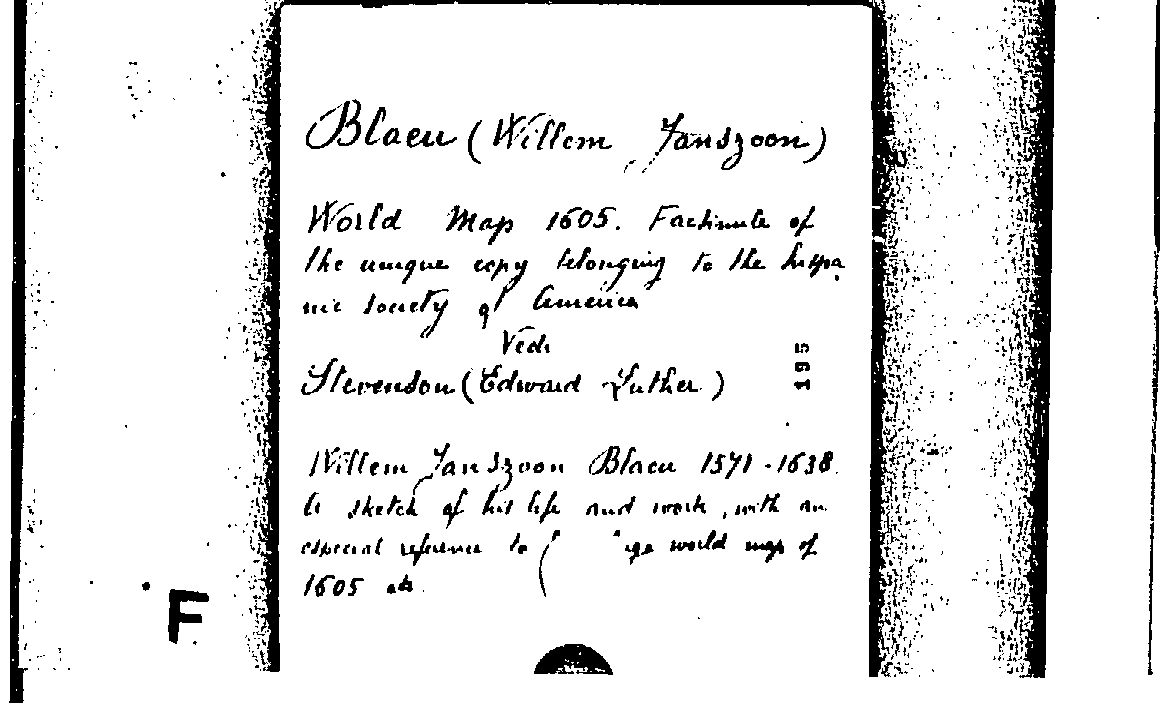 Blaeu (Willem Janszoon)
World Map 1605. Facsimile of
the unique copy belonging to the hispa
nic society of America
Vedi
195
Stevenson (Edward Luther)
Willem Janszoon Blaeu 1571-1638.
A sketch of his life and work, with an
especial reference to world map of
1605 etc.
F